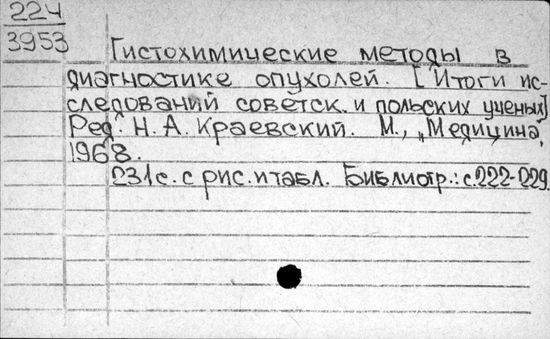 224
3953
Гистохимические методы в
диагностике опухолей. [Итоги ис-
следований советск. и польских ученых]
Ред. Н. А. Краевский. М., „Медицина,
1968.
231с. с рис. и табл. Библиогр.: с. 222-229.